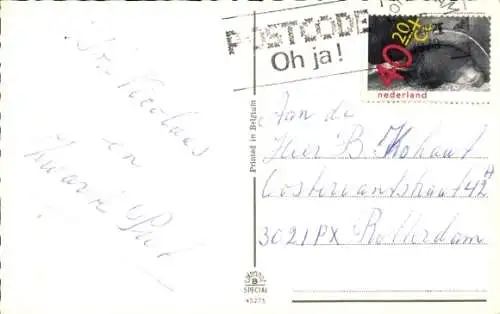 POSTCODE
Oh ja!
40+20 c
nederland
St. Nicolaas
en
Zwarte Piet
Printed in Belgium
Aan de
Heer B Kohaut
Oostervantstraat 42A
3021PX Rotterdam
B
SPECIAL